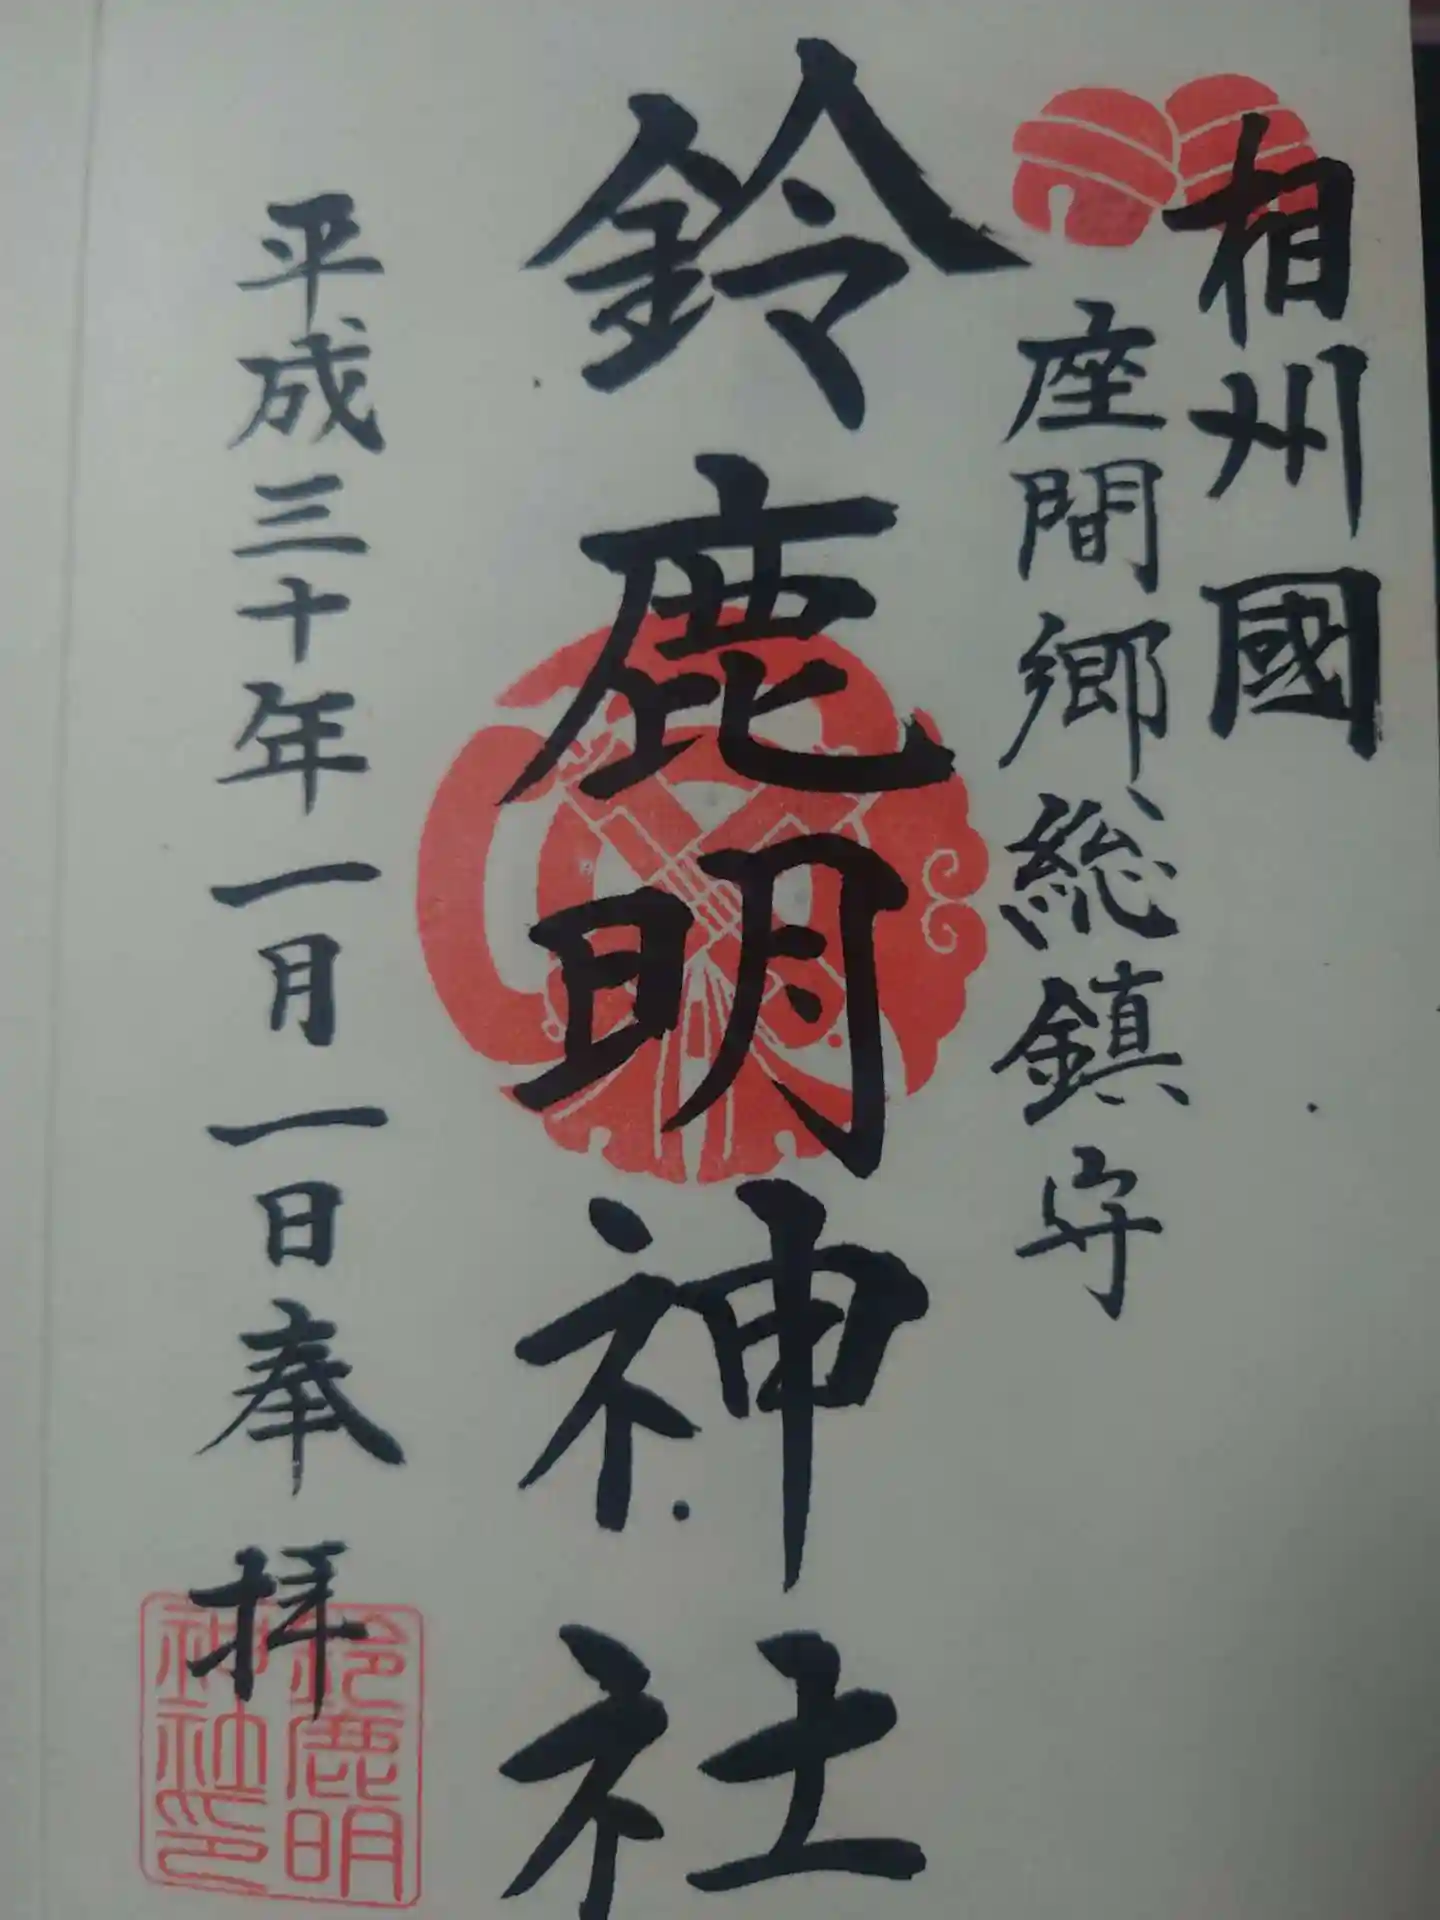 相州國
座間郷総鎮守
鈴鹿明神社
平成三十年一月一日奉拝
鈴鹿明
神社印